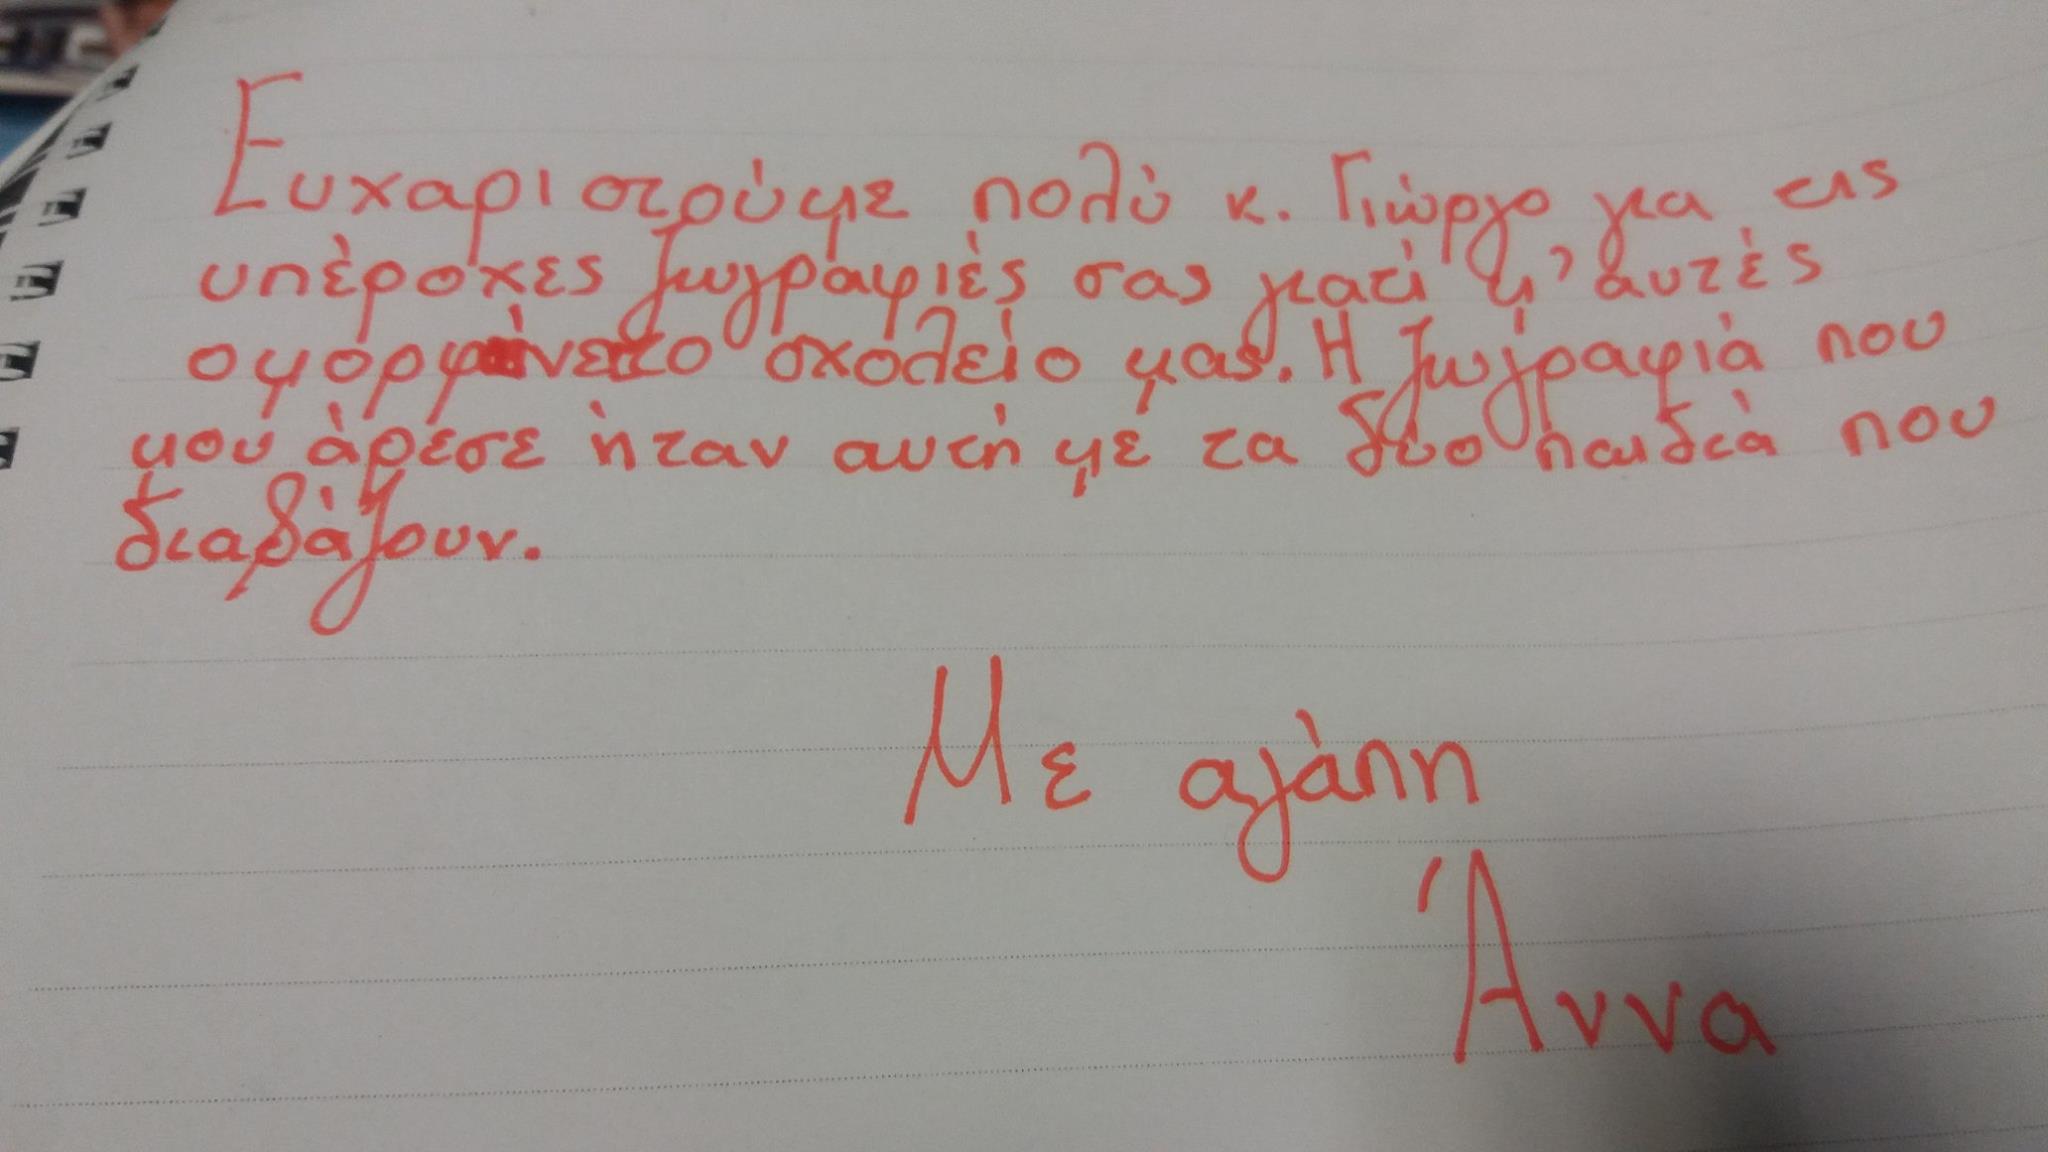 Ευχαριστούμε πολύ κ. Γιώργο για τις
υπέροχες ζωγραφιές σας γιατί μ' αυτές
το σχολείο μας. Η ζωγραφιά που
μου άρεσε ήταν αυτή με τα δύο παιδιά που
διαβάζουν.
Με αγάπη
Άννα